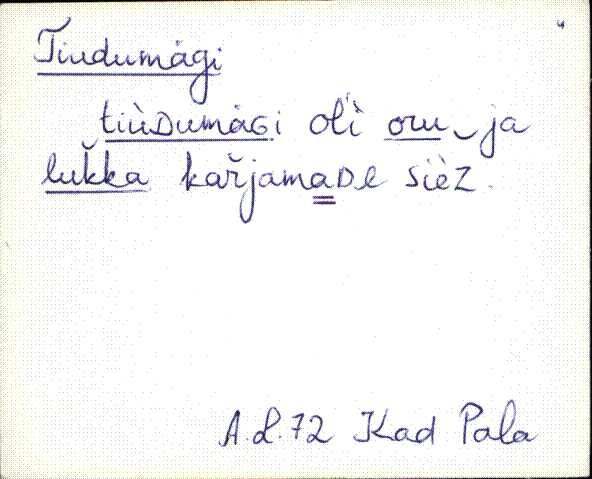 Tiudumägi
tiùᴅumäɢi oĺì oru‿ja
luk̆ka kar̆jamaᴅe sìèz.
A.L.72 Kad Pala